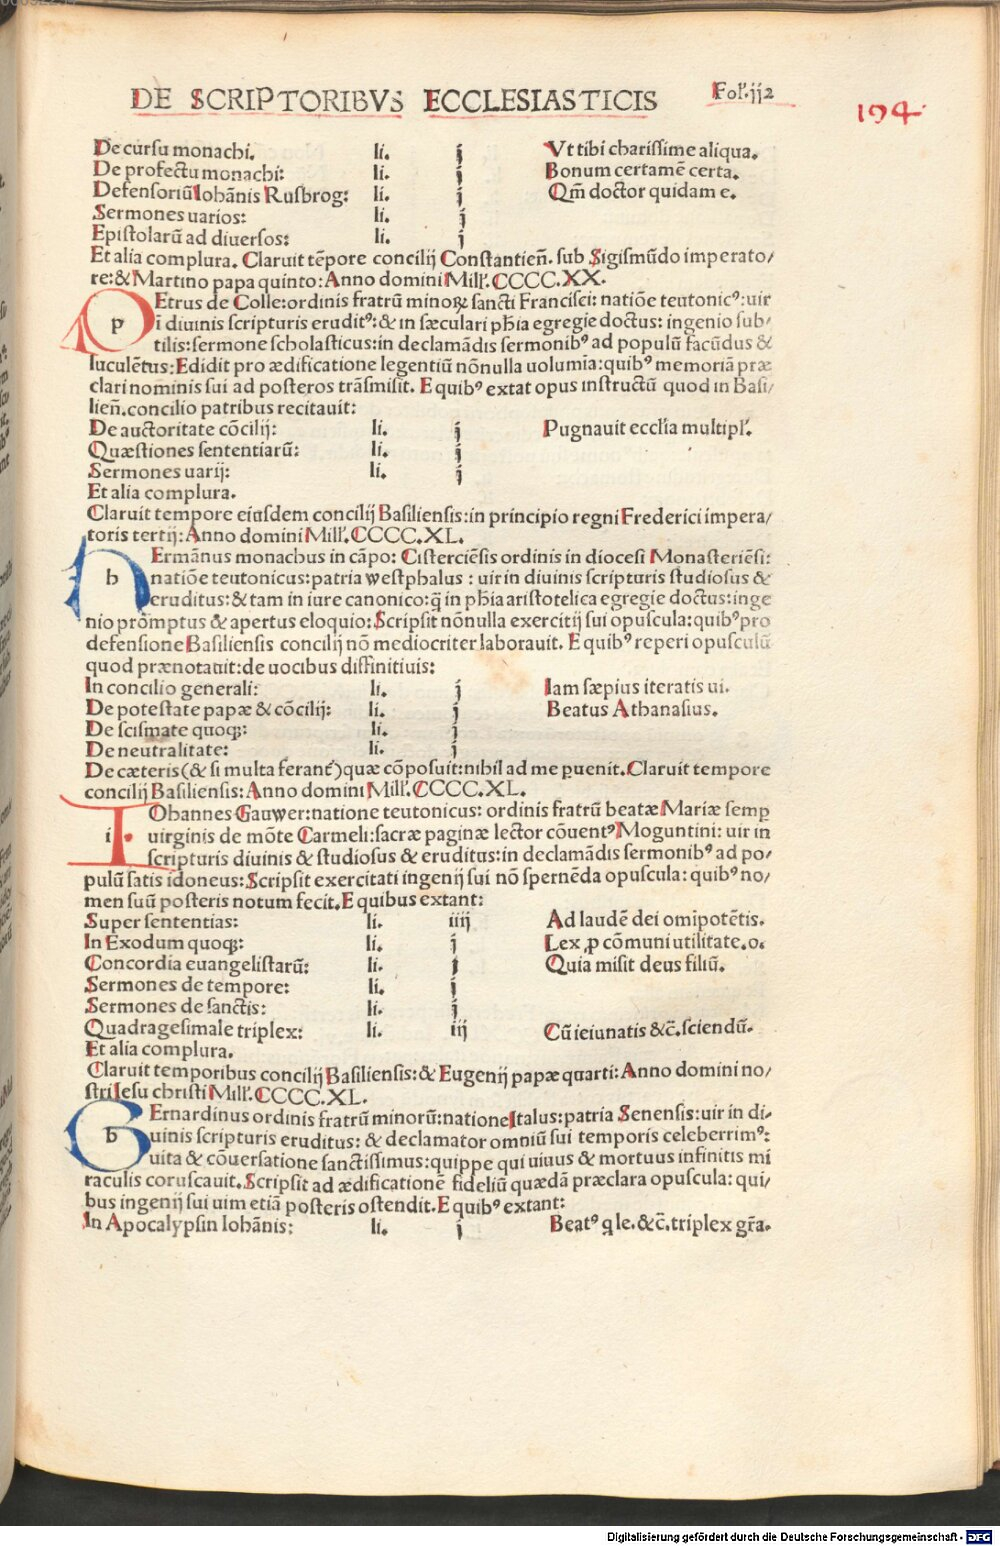 DE SCRIPTORIBVS ECCLESIASTICIS Fol'.jj2
194
De cursu monachi. li. j Vt tibi charissime aliqua.
De profectu monachi: li. j Bonum certamē certa.
Defensoriū Iohānis Rusbrog: li. j Qm̄ doctor quidam e.
Sermones uarios: li. j
Epistolarū ad diuersos: li. j
Et alia complura. Claruit tēpore concilij Constantien̄. sub Sigismūdo imperato/
re: & Martino papa quinto: Anno domini Mill'. CCCC.XX.
p Etrus de Colle: ordinis fratrū minoꝝ sancti Francisci: natiōe teutonicꝰ: uir
i diuinis scripturis eruditꝰ: & in sæculari ph̄ia egregie doctus: ingenio sub/
tilis: sermone scholasticus: in declamādis sermonibꝰ ad populū facūdus &
luculētus: Edidit pro ædificatione legentiū nōnulla uolumīa: quibꝰ memoriā præ
clari nominis sui ad posteros trāsmisit. E quibꝰ extat opus instructū quod in Basi/
lien̄. concilio patribus recitauit:
De auctoritate cōcilij: li. j Pugnauit eccl'ia multipl'.
Quæstiones sententiarū: li. j
Sermones uarij: li. j
Et alia complura.
Claruit tempore eiusdem concilij Basiliensis: in principio regni Frederici impera/
toris tertij: Anno domini Mill'. CCCC.XL.
h Ermānus monachus in cāpo: Cisterciēsis ordinis in diocesi Monasteriēsi:
natiōe teutonicus: patria westphalus: uir in diuinis scripturis studiosus &
eruditus: & tam in iure canonico: q̄ in ph̄ia aristotelica egregie doctus: inge
nio prōmptus & apertus eloquio: Scripsit nōnulla exercitij sui opuscula: quibꝰ pro
defensione Basiliensis concilij nō mediocriter laborauit. E quibꝰ reperi opusculū
quod prænotauit: de uocibus diffinitiuis:
In concilio generali: li. j Iam sæpius iteratis ui.
De potestate papæ & cōcilij: li. j Beatus Athanasius.
De scismate quoqꝫ: li. j
De neutralitate: li. j
De cæteris (& si multa ferant') quæ cōposuit: nihil ad me ꝑuenit. Claruit tempore
concilij Basiliensis: Anno domini Mill'. CCCC.XL.
i Ohannes Gauwer: natione teutonicus: ordinis fratrū beatæ Mariæ semꝑ
uirginis de mōte Carmeli: sacræ paginæ lector cōuentꝰ Moguntini: uir in
scripturis diuinis & studiosus & eruditus: in declamādis sermonibꝰ ad po/
pulū satis idoneus: Scripsit exercitati ingenij sui nō spernēda opuscula: quibꝰ no/
men suū posteris notum fecit. E quibus extant:
Super sententias: li. iiij Ad laudē dei omīpotētis.
In Exodum quoqꝫ: li. j Lex ꝓ cōmuni utilitate. o.
Concordia euangelistarū: li. j Quia misit deus filiū.
Sermones de tempore: li. j
Sermones de sanctis: li. j
Quadragesimale triplex: li. iij Cū ieiunatis &c̄. sciendū.
Et alia complura.
Claruit temporibus concilij Basiliensis: & Eugenij papæ quarti: Anno domini no/
stri Iesu christi Mill'. CCCC.XL.
b Ernardinus ordinis fratrū minorū: natione Italus: patria Senensis: uir in di/
uinis scripturis eruditus: & declamator omniū sui temporis celeberrimꝰ:
uita & cōuersatione sanctissimus: quippe qui uiuus & mortuus infinitis mi
raculis coruscauit. Scripsit ad ædificationē fideliū quædā præclara opuscula: qui/
bus ingenij sui uim etiā posteris ostendit. E quibꝰ extant:
In Apocalypsin Iohānis: li. j Beatꝰ q le. &c̄. triplex gr̄a.
Digitalisierung gefördert durch die Deutsche Forschungsgemeinschaft - DFG